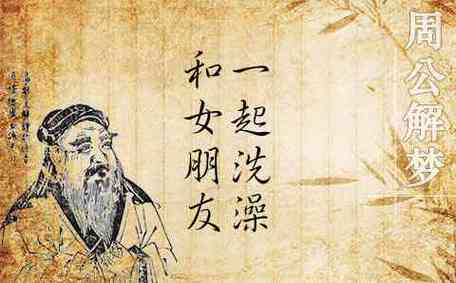 周公解梦
和女朋友
一起洗澡